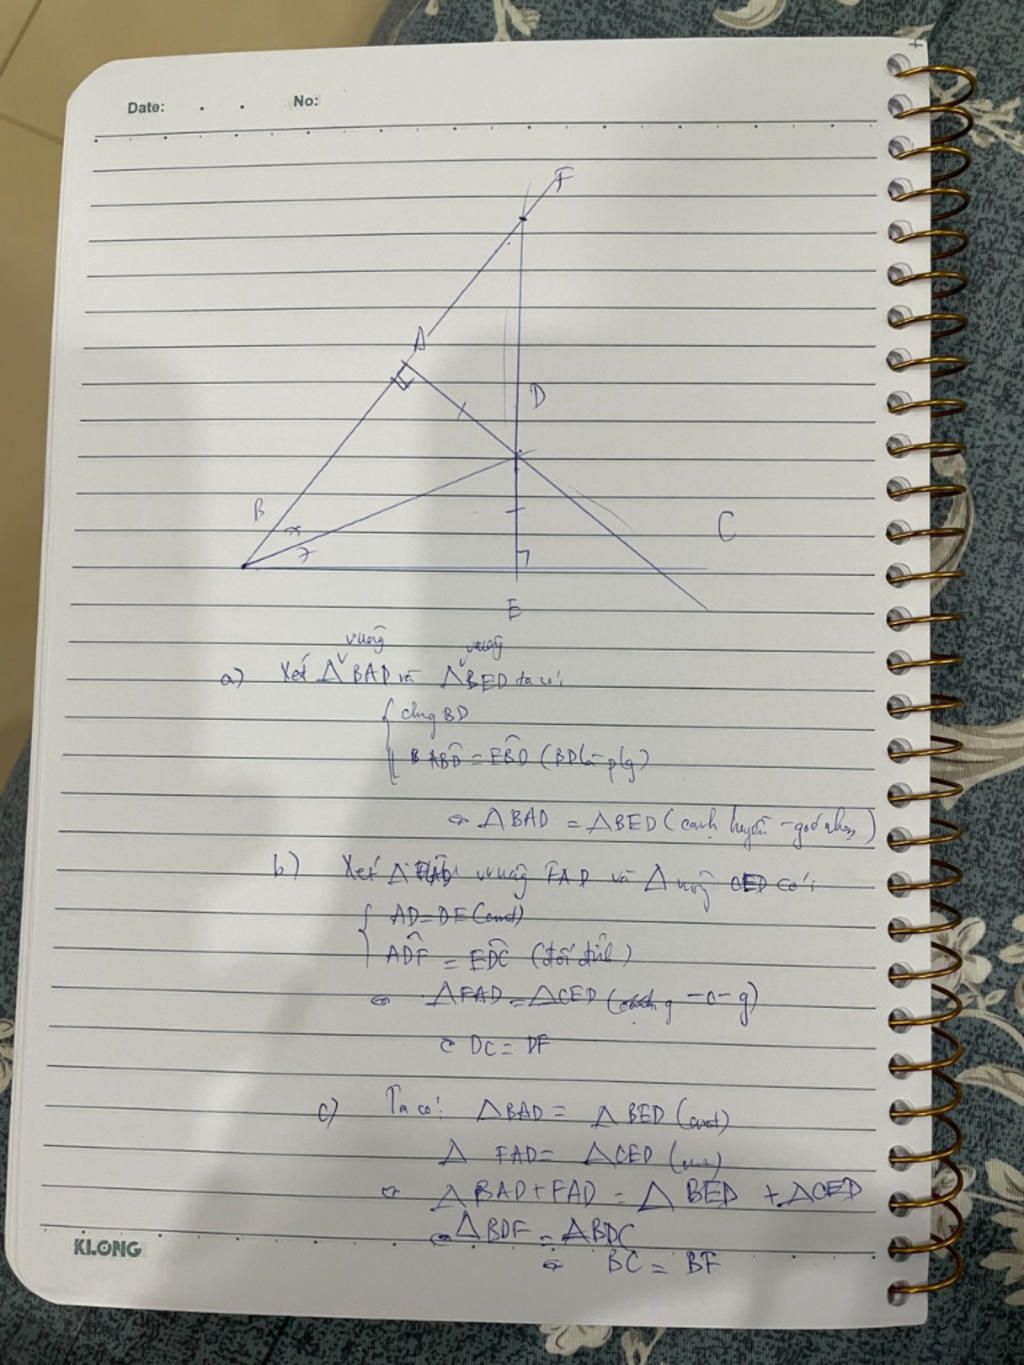 Date: . . No:
F
A
D
B
C
E
vuông vuông
a) Xét Δ BAD và Δ BED ta có:
chung BD
ABD̂ = EB̂D (BD là p/g)
⇔ Δ BAD = Δ BED (cạnh huyền - góc nhọn)
b) Xét Δ vuông FAD và Δ vuông CED có:
AD = DE (cmt)
AD̂F = ED̂C (đối đỉnh)
⇔ Δ FAD = Δ CED (g - c - g)
DC = DF
c) Ta có: Δ BAD = Δ BED (cmt)
Δ FAD = Δ CED (cmt)
⇔ Δ BAD + FAD = Δ BED + Δ CED
⇔ Δ BDF = Δ BDC
⇔ BC = BF
KLONG